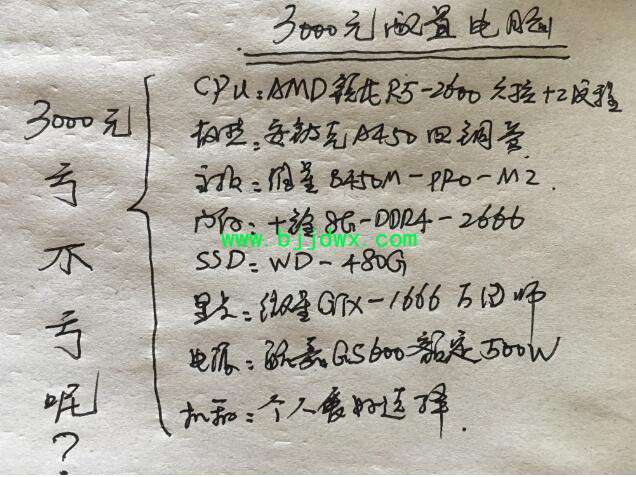 3000元配置电脑
3000元亏不亏呢?
CPU:AMD锐龙R5-2600六核+二线程
散热:安钛克A450四铜管
主板:微星B450M-PRO-M2.
内存:十铨8G-DDR4-2666
www.bjjdwx.com
SSD:WD-480G
显卡:微星GTX-1666万图师
电源:酷嘉GS600额定500W
机箱:个人喜好选择.